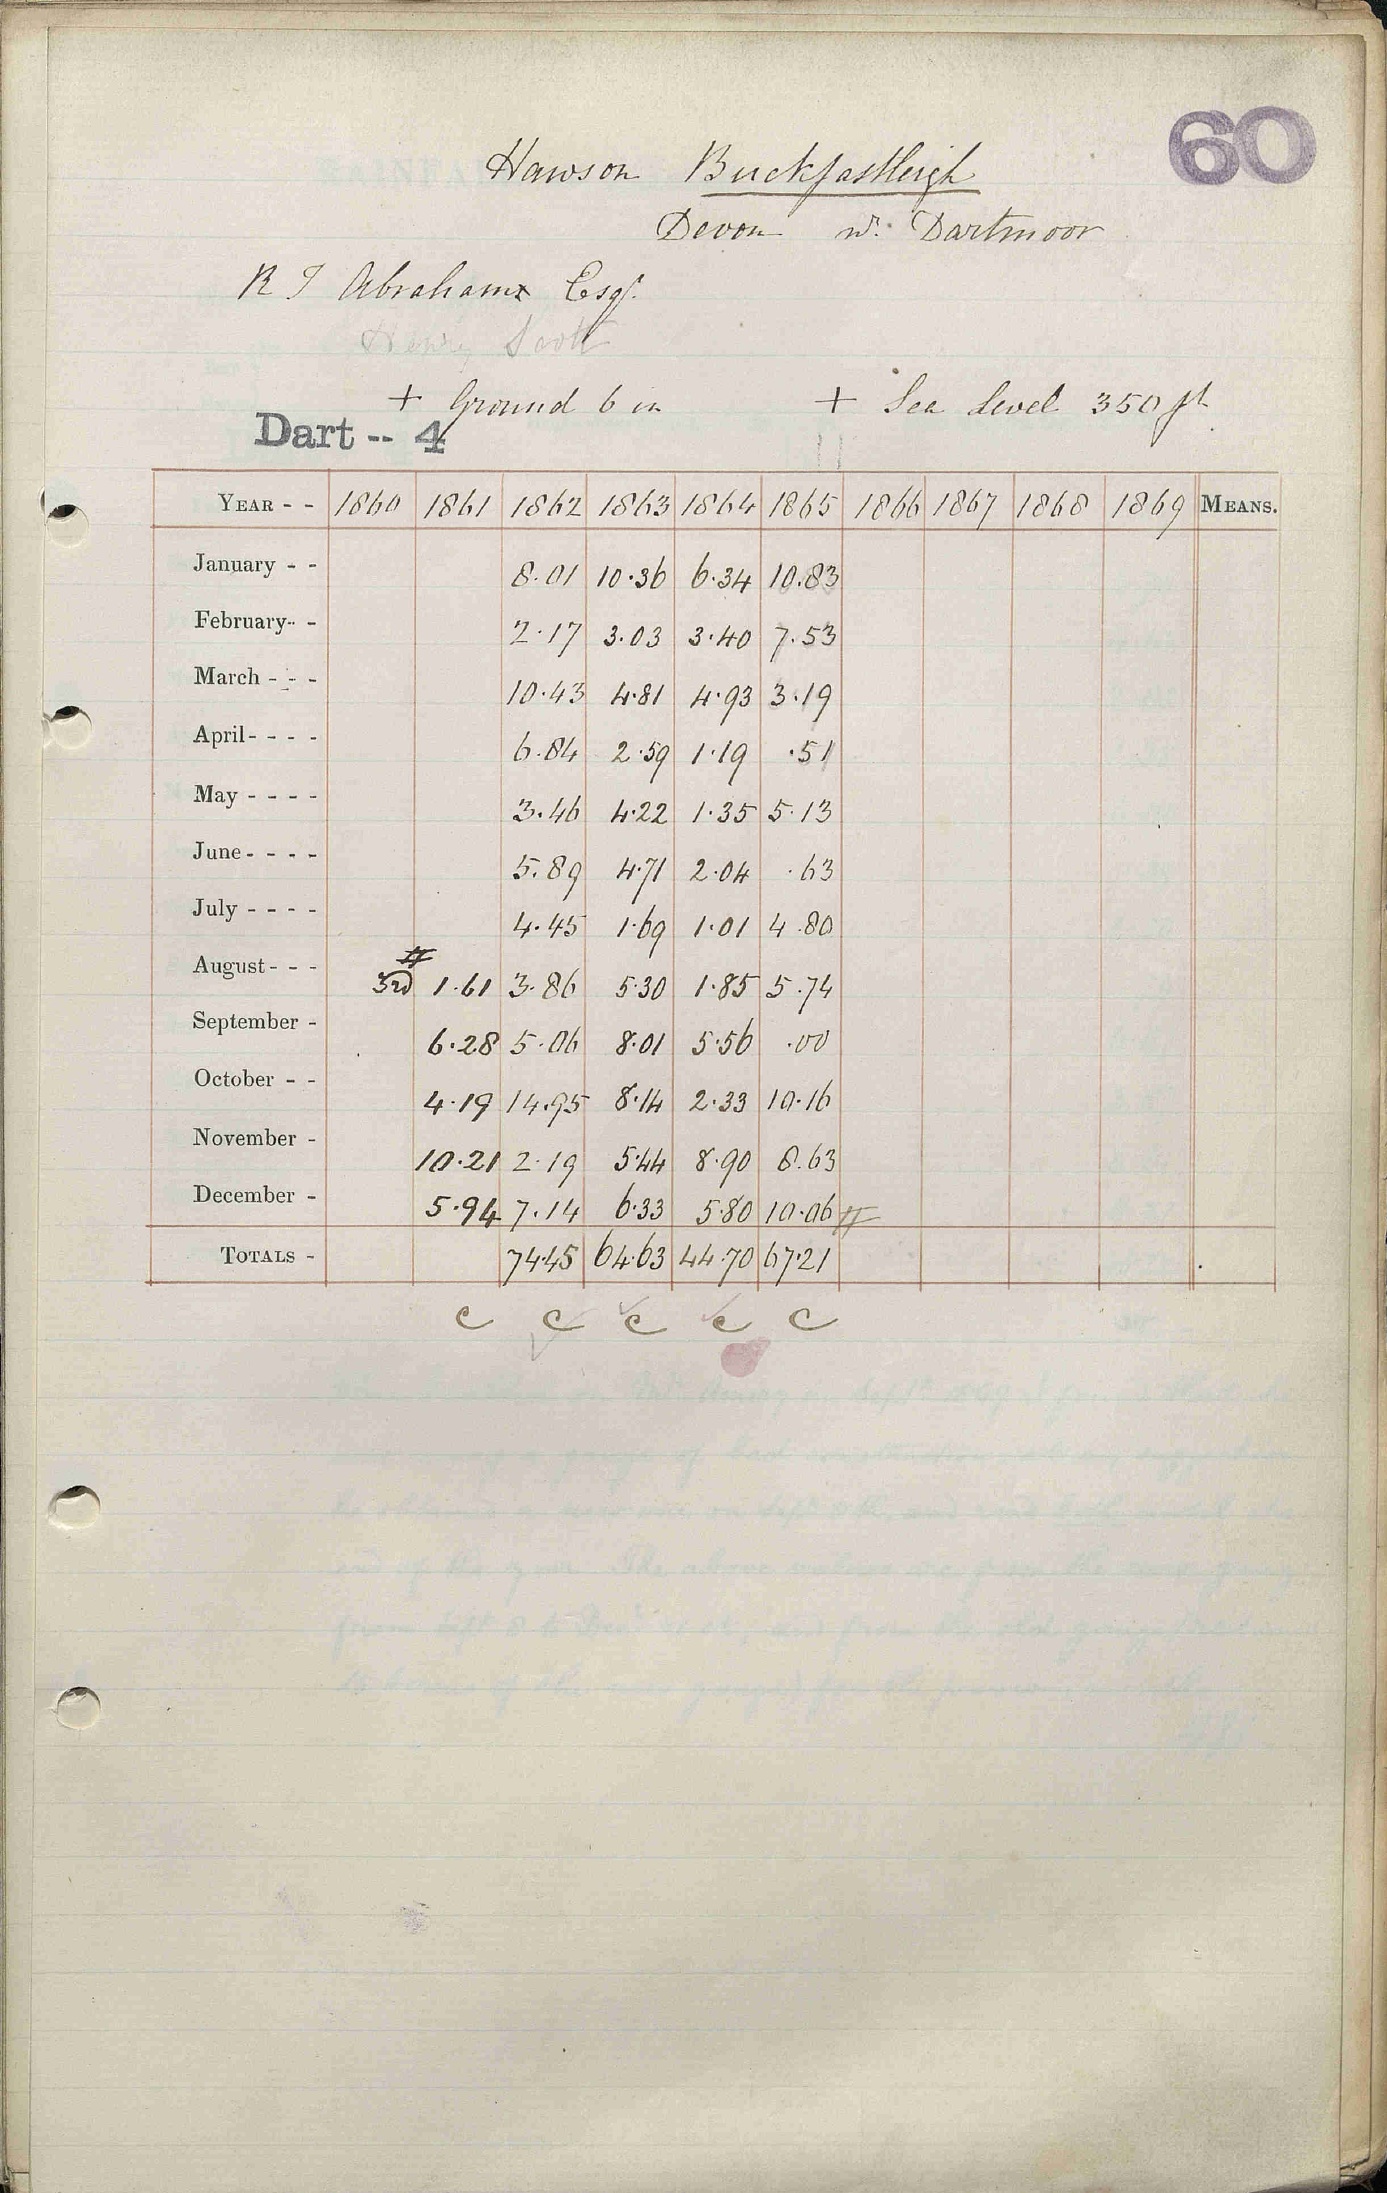 60
Hawson Buckfastleigh
Devon nr. Dartmoor
R J Abraham Esqr.
Henry Scott
+ Ground 6 in + Sea Level 350 ft
Dart -- 4
YEAR - - 1860 1861 1862 1863 1864 1865 1866 1867 1868 1869 MEANS.
January - - 8.01 10.36 6.34 10.83
February - - 2.17 3.03 3.40 7.53
March - - - 10.43 4.81 4.93 3.19
April - - - - 6.84 2.59 1.19 .51
May - - - - 3.46 4.22 1.35 5.13
June - - - - 5.89 4.71 2.04 .63
July - - - - 4.45 1.69 1.01 4.80
August - - - 3rd 1.61 3.86 5.30 1.85 5.74
September - 6.28 5.06 8.01 5.56 .00
October - - 4.19 14.95 8.14 2.33 10.16
November - 10.21 2.19 5.44 8.90 8.63
December - 5.94 7.14 6.33 5.80 10.06
TOTALS - 74.45 64.63 44.70 67.21
c c c c c